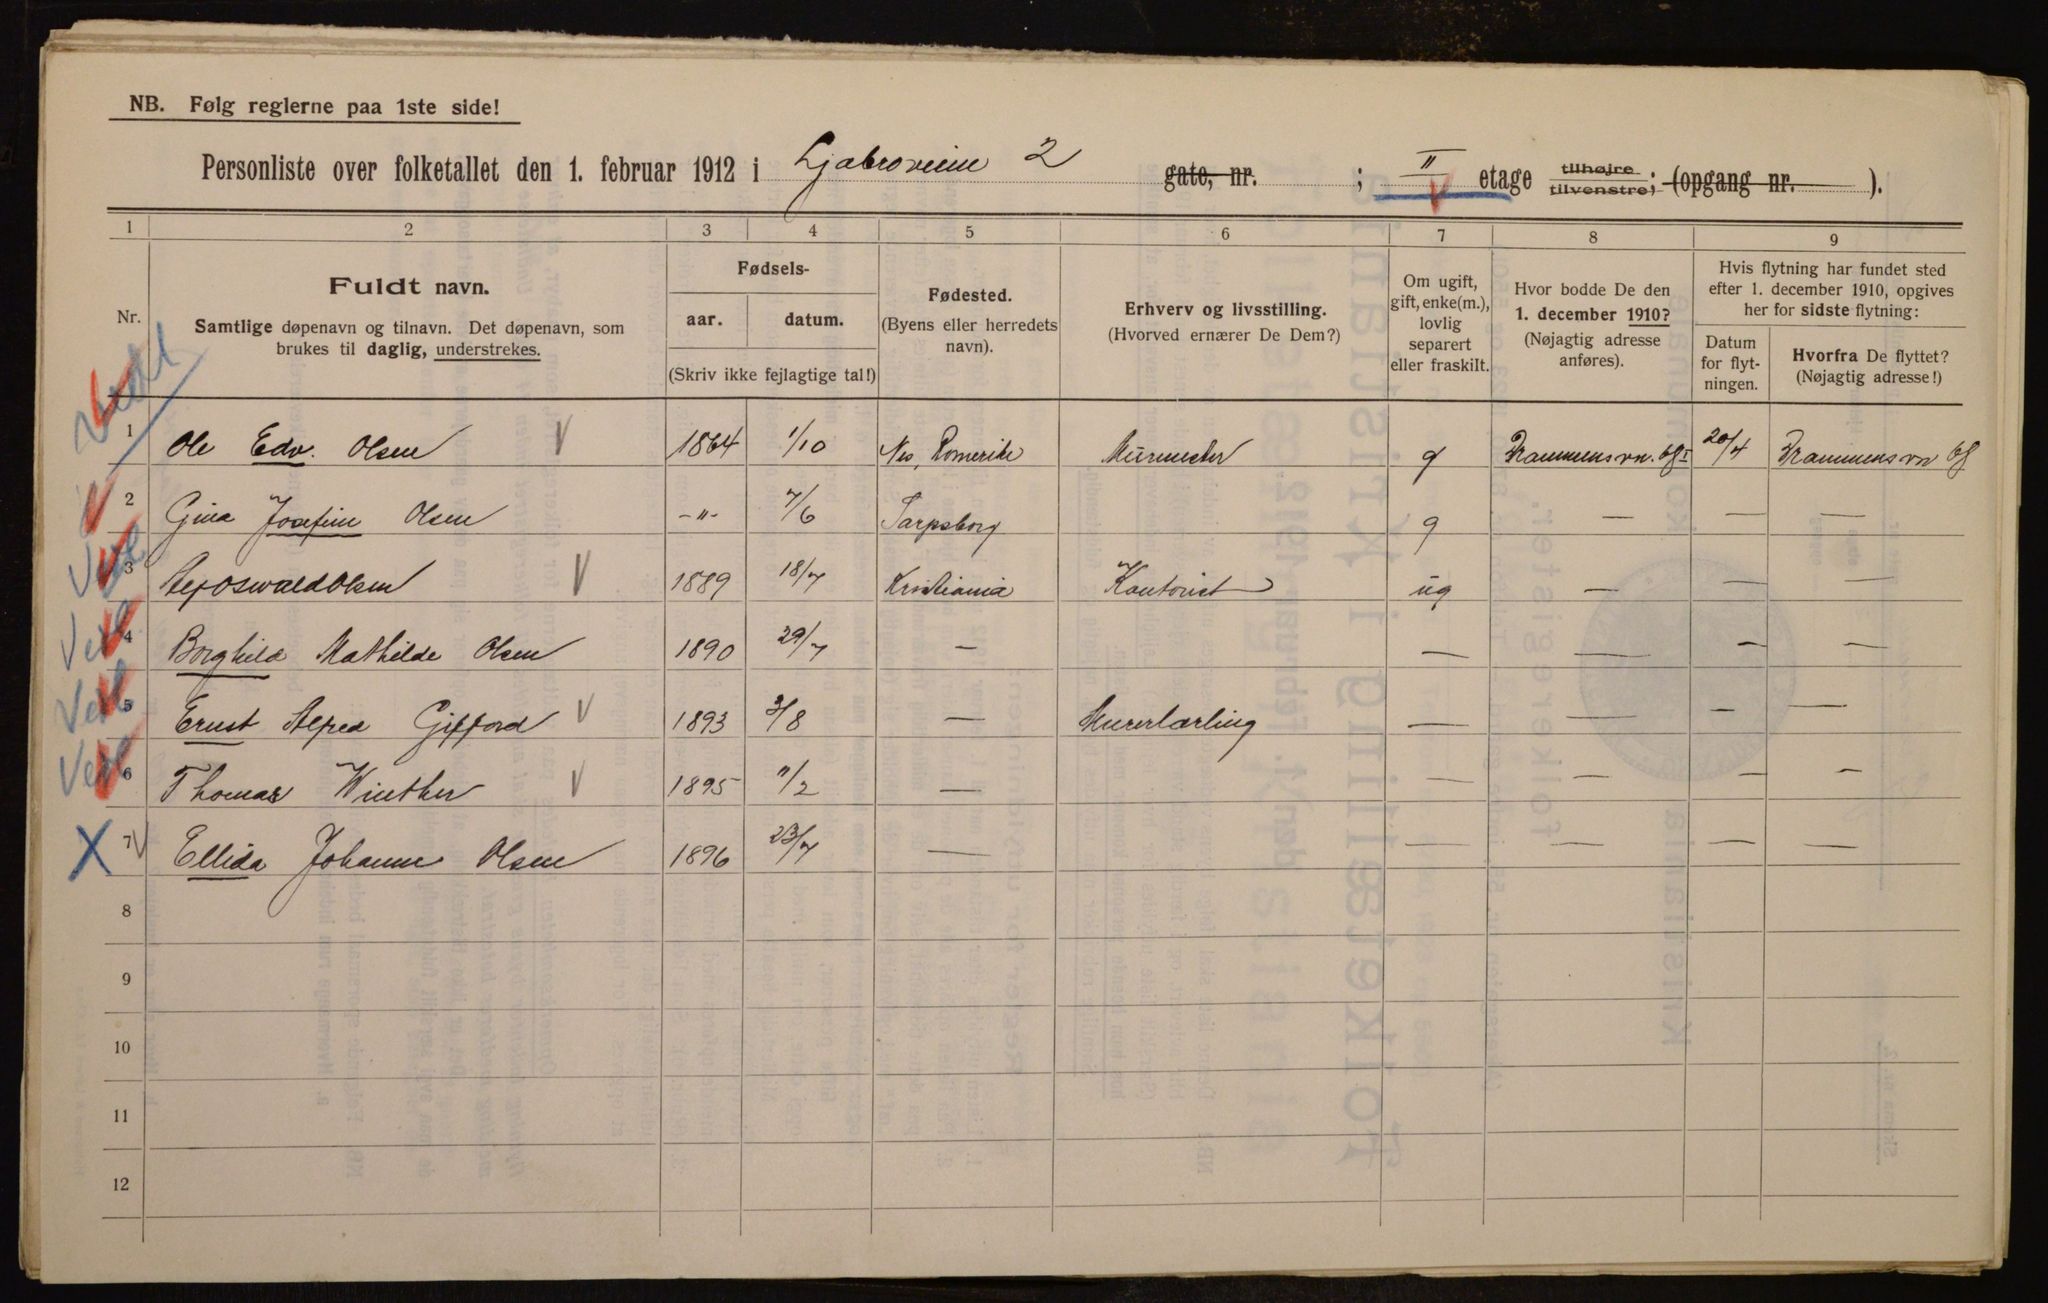 NB. Følg reglerne paa 1ste side!
Personliste over folketallet den 1. februar 1912 i Ljabroveien 2 gate, nr. ; II etage tilhøjre tilvenstre; (opgang nr. ).
1 2 3 4 5 6 7 8 9
Nr.
Fuldt navn.
Samtlige døpenavn og tilnavn. Det døpenavn, som
brukes til daglig, understrekes.
Fødsels-
aar. datum.
(Skriv ikke fejlagtige tal!)
Fødested.
(Byens eller herredets
navn).
Erhverv og livsstilling.
(Hvorved ernærer De Dem?)
Om ugift,
gift, enke(m.),
lovlig
separert
eller fraskilt.
Hvor bodde De den
1. december 1910?
(Nøjagtig adresse
anføres).
Hvis flytning har fundet sted
efter 1. december 1910, opgives
her for sidste flytning:
Datum
for flyt-
ningen.
Hvorfra De flyttet?
(Nøjagtig adresse!)
1 Ole Edv. Olsen 1864 1/10 Nes, Romerike Murmester g Drammensvn. 68 I 20/4 Drammensvn 68
2 Gina Josefine Olsen -"- 7/6 Sarpsborg g — — —
3 Oswald Olsen 1889 18/7 Kristiania Kontorist ug — — —
4 Borghild Mathilde Olsen 1890 29/7 — — — — —
5 Ernst Alfred Gifford 1893 3/8 — Murerlærling — — — —
6 Thomas Winther 1895 11/2 — — — — —
7 Ellida Johanne Olsen 1896 23/7 — — — — —
8
9
10
11
12